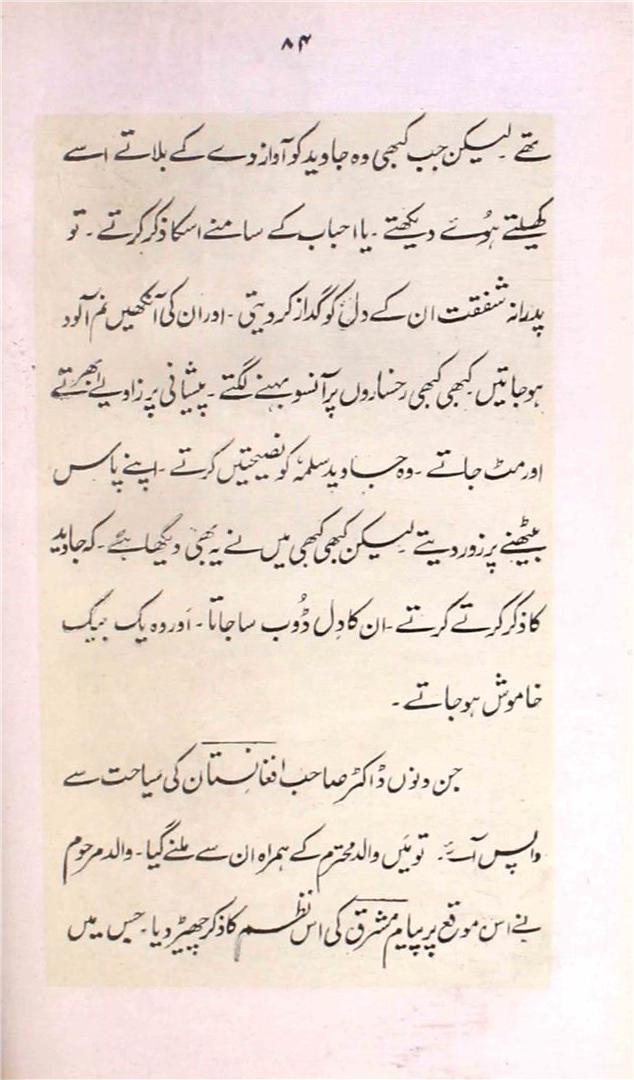 ۸۴
تھے۔ لیکن جب کبھی وہ جاوید کو آواز دے کے بلاتے اسے
کھیلتے ہوُئے دیکھتے۔ یا احباب کے سامنے اسکا ذکر کرتے۔ تو
پدرانہ شفقت ان کے دل کو گداز کر دیتی۔ اور ان کی آنکھیں نم آلود
ہو جاتیں۔ کبھی کبھی رخساروں پر آنسو بہنے لگتے۔ پیشانی پر زاویے ابھرتے
اور مٹ جاتے۔ وہ جاوید سلمہٗ کو نصیحتیں کرتے۔ اپنے پاس
بیٹھنے پر زور دیتے۔ لیکن کبھی کبھی میں نے یہ بھی دیکھا ہے۔ کہ جاوید
کا ذکر کرتے کرتے۔ ان کا دِل ڈوُب سا جاتا۔ اَور وہ یک بیک
خاموش ہو جاتے۔
جن دنوں ڈاکٹر صاحب افغانستان کی سیاحت سے
واپس آئے۔ تو مَیں والد محترم کے ہمراہ ان سے ملنے گیا۔ والد مرحوم
نے اس موقع پر پیام مشرق کی اس نظم کا ذکر چھیڑ دیا۔ جس میں